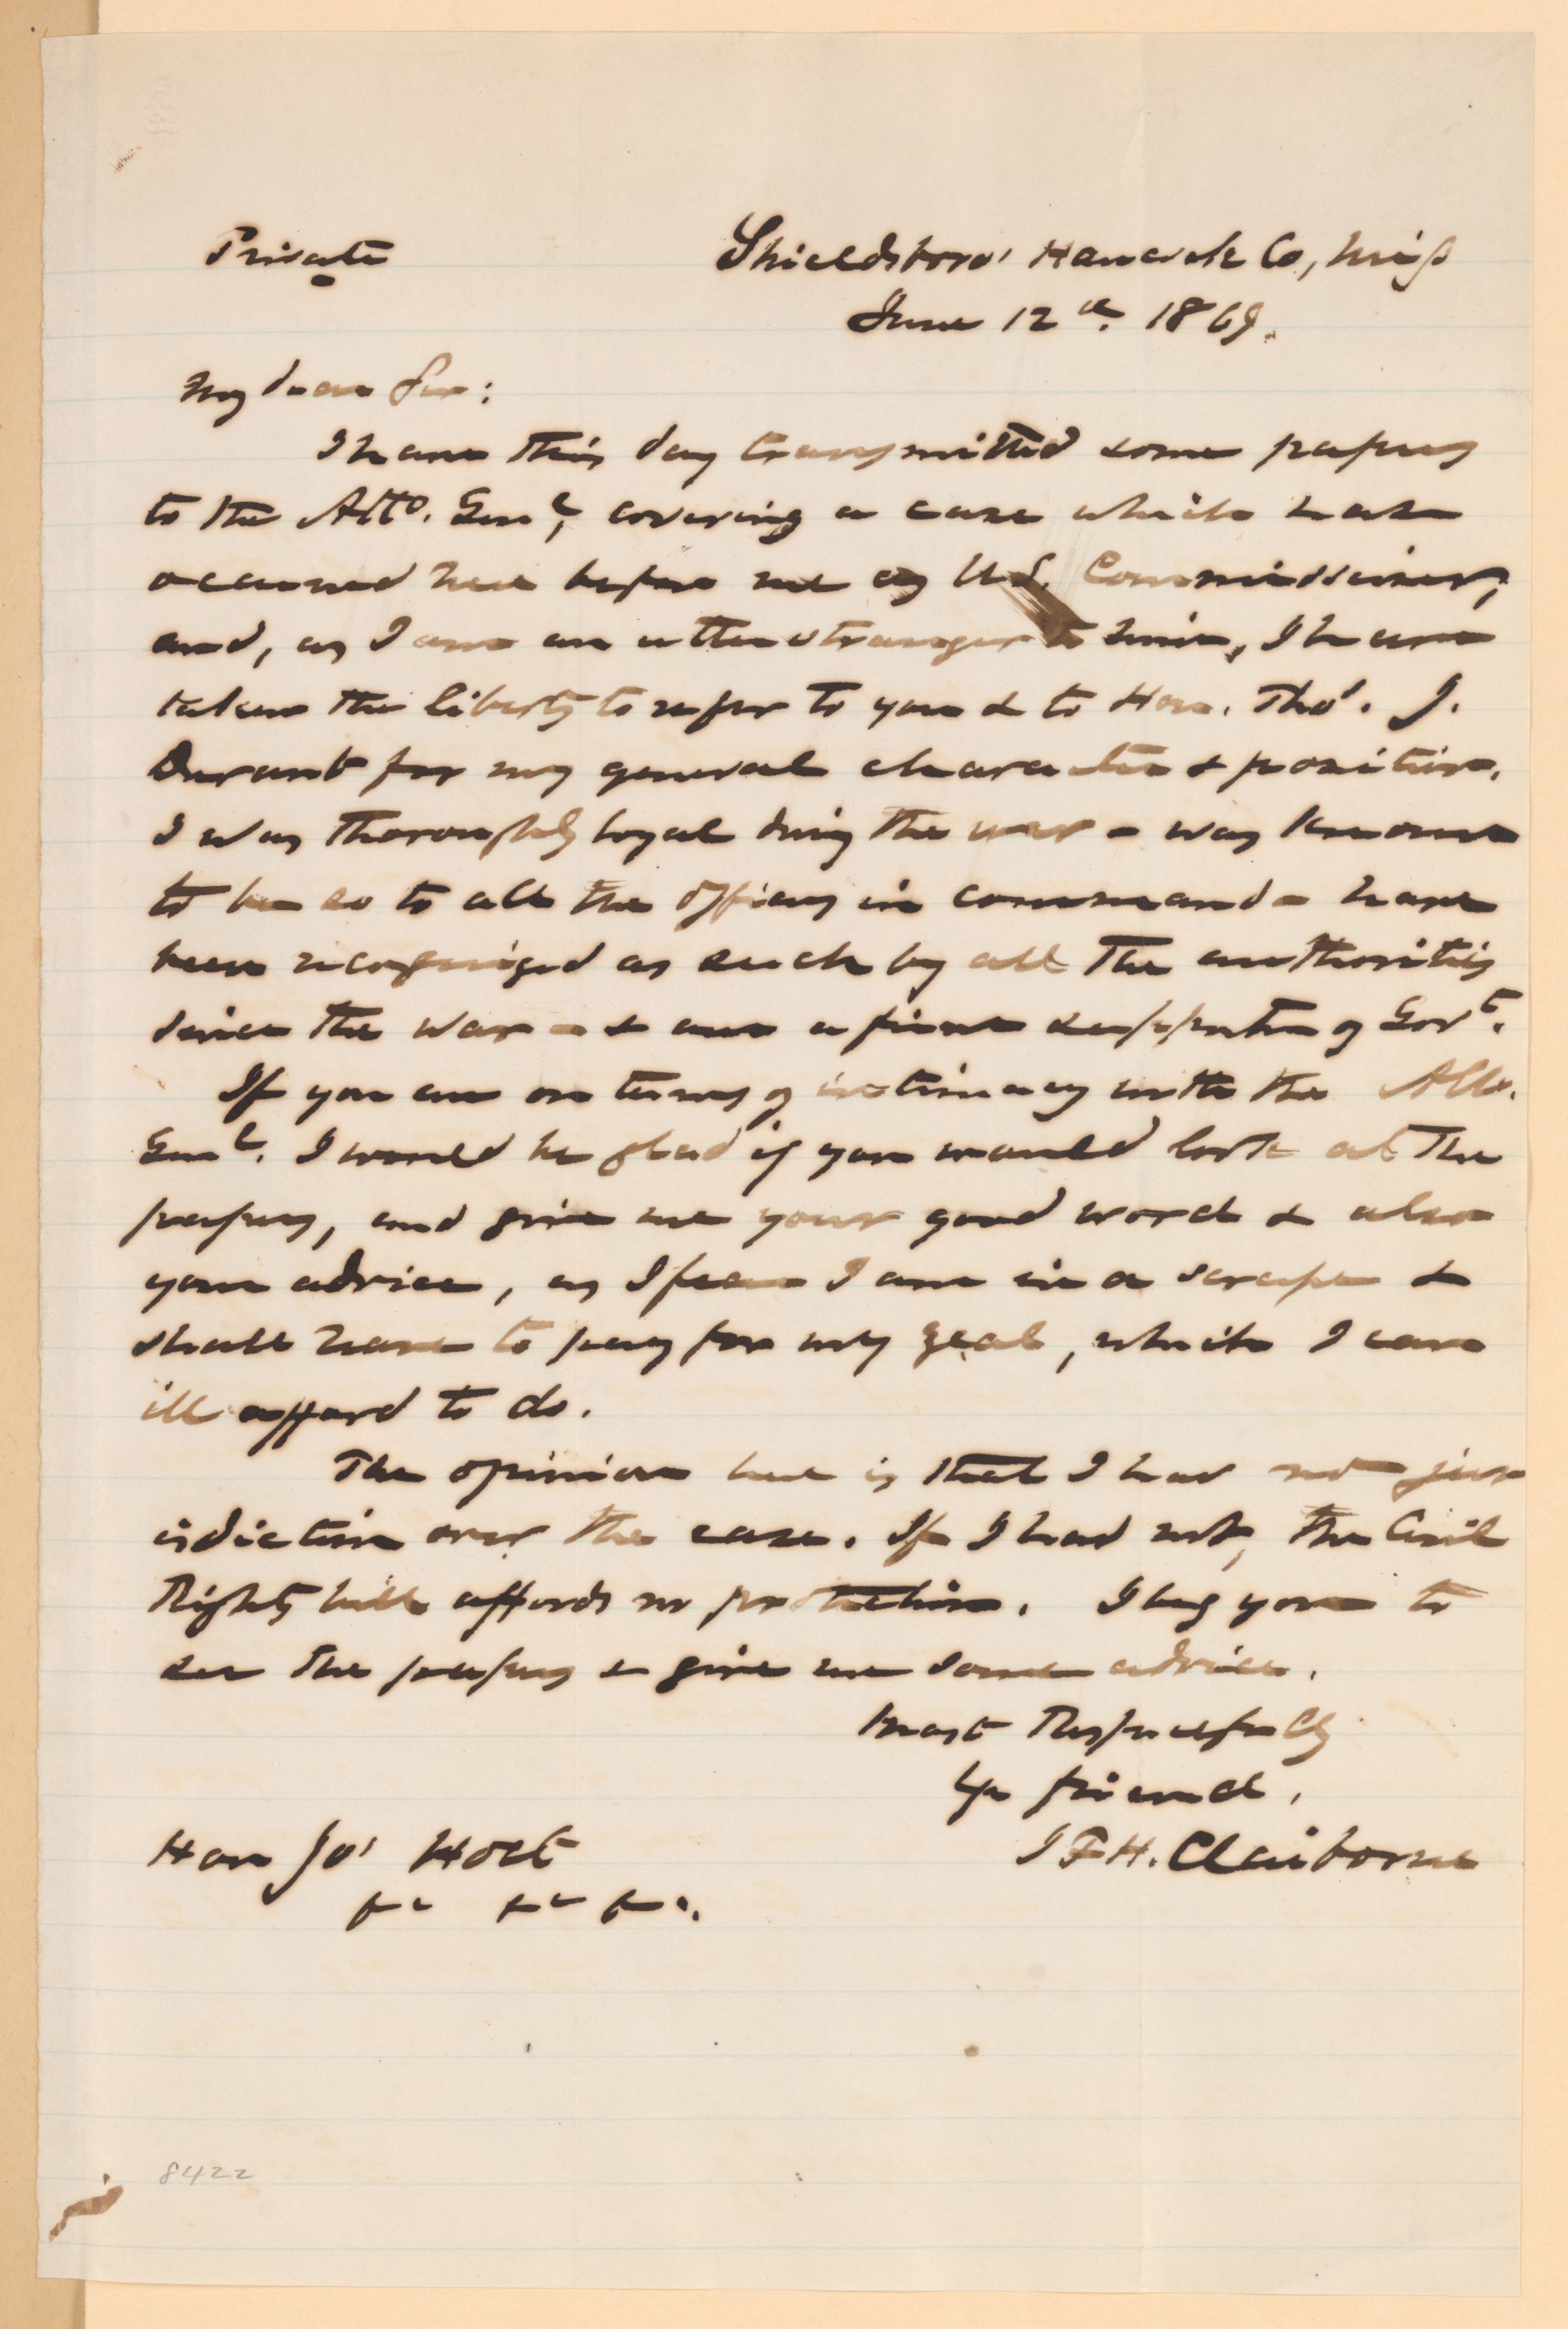 Private
Shieldsboro' Hancock Co, Miss
June 12th. 1869.
My dear Sir:
I have this day transmitted some papers
to the Atto. Genl, covering a case which has
occurred here before me as U.S. Commissioner,
and, as I am an utter stranger to him, I have
taken the liberty to refer to you & to Hon. Thos. J.
Durant for my general character & position.
I was thoroughly loyal during the war - was known
to be so to all the officers in command - have
been recognized as such by all the authorities
since the war - & am a firm supporter of Govt.
If you are on terms of intimacy with the Atto.
Genl. I would be glad if you would look at the
papers, and give me your good word & also
your advice, as I fear I am in a scrape &
shall have to pay for my zeal, which I can
ill afford to do.
The opinion here is that I had not jur
isdiction over the case. If I had not, the Civil
Rights bill affords no protection. I beg you to
see the papers & give me some advice.
Most Respectfully
Yr friend,
J F H. Claiborne
Hon Jo' Holt
&c &c &c.
8422